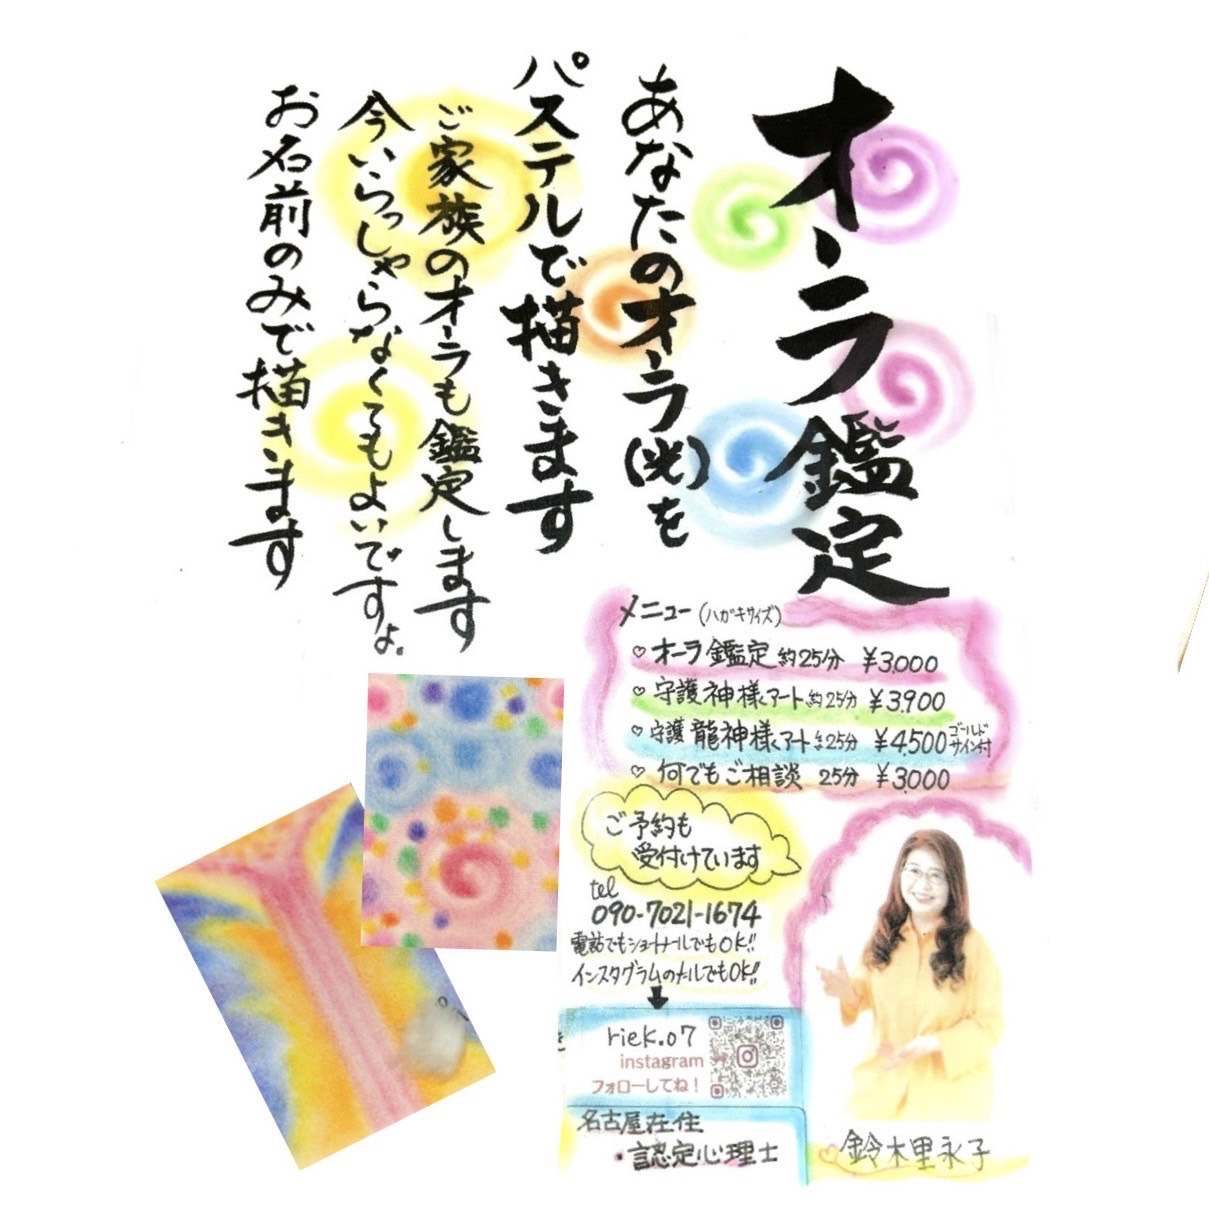 オーラ鑑定
あなたのオーラ(光)を
パステルで描きます
ご家族のオーラも鑑定します
今いらっしゃらなくてもよいですよ。
お名前のみで描きます
メニュー(ハガキサイズ)
♡オーラ鑑定 約25分 ¥3,000
♡守護神様アート 約25分 ¥3,900
♡守護龍神様アート 約25分 ¥4,500 ゴールドサイン付
♡何でもご相談 25分 ¥3,000
ご予約も
受付けています
tel
090-7021-1674
電話でもショートメールでもOK!!
インスタグラムのメールでもOK!!
riek.07
instagram
フォローしてね!
名古屋在住
・認定心理士
♡鈴木里永子